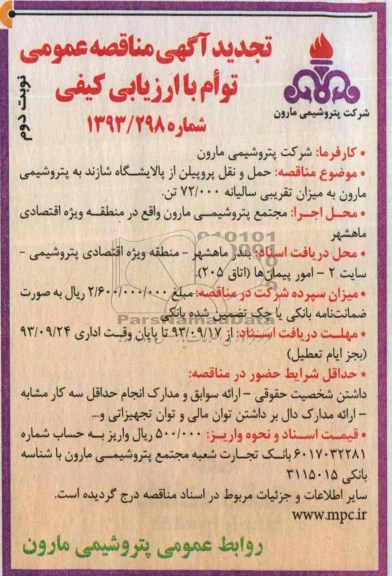 تجدید آگهی مناقصه عمومی
توأم با ارزیابی کیفی
شماره ۱۳۹۳/۲۹۸
نوبت دوم
شرکت پتروشیمی مارون
• کارفرما: شرکت پتروشیمی مارون
• موضوع مناقصه: حمل و نقل پروپیلن از پالایشگاه شازند به پتروشیمی
مارون به میزان تقریبی سالیانه ۷۲/۰۰۰ تن.
• محل اجرا: مجتمع پتروشیمی مارون واقع در منطقه ویژه اقتصادی
ماهشهر
• محل دریافت اسناد: بندر ماهشهر - منطقه ویژه اقتصادی پتروشیمی -
سایت ۲ - امور پیمان‌ها (اتاق ۲۰۵).
• میزان سپرده شرکت در مناقصه: مبلغ ۲/۶۰۰/۰۰۰/۰۰۰ ریال به صورت
ضمانت‌نامه بانکی یا چک تضمین شده بانکی
ParsNamadData
• مهلت دریافت اسناد: از ۹۳/۰۹/۱۷ تا پایان وقت اداری ۹۳/۰۹/۲۴
(بجز ایام تعطیل)
• حداقل شرایط حضور در مناقصه:
داشتن شخصیت حقوقی - ارائه سوابق و مدارک انجام حداقل سه کار مشابه
- ارائه مدارک دال بر داشتن توان مالی و توان تجهیزاتی و...
• قیمت اسناد و نحوه واریز: ۵۰۰/۰۰۰ ریال واریز به حساب شماره
۶۰۱۷۰۳۲۲۸۱ بانک تجارت شعبه مجتمع پتروشیمی مارون با شناسه
بانکی ۳۱۱۵۰۱۵
سایر اطلاعات و جزئیات مربوط در اسناد مناقصه درج گردیده است.
www.mpc.ir
روابط عمومی پتروشیمی مارون